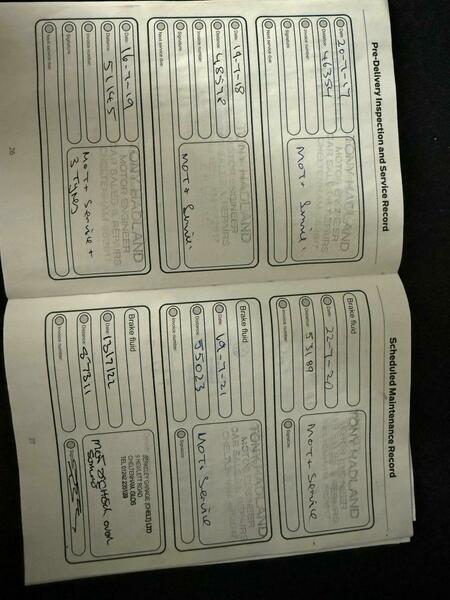 Pre-Delivery Inspection and Service Record
Date: 20-7-17
Distance: 46354
Invoice number:
Signature:
Next service due:
TONY HADLAND
MOTOR ENGINEER
CAR SALES & REPAIRS
MOT + Service
Date: 19-7-18
Distance: 48578
Invoice number:
Signature:
Next service due:
TONY HADLAND
MOTOR ENGINEER
MOT + Service
Date: 16-7-19
Distance: 51145
Invoice number:
Signature:
Next service due:
TONY HADLAND
MOTOR ENGINEER
CAR SALES & REPAIRS
MOT + Service +
3 Tyres
26
Scheduled Maintenance Record
Brake fluid
Date: 22-7-20
Distance: 53189
Invoice number:
TONY HADLAND
MOTOR ENGINEER
MOT + Service
Signature:
Brake fluid
Date: 19-7-21
Distance: 55023
Invoice number:
TONY HADLAND
MOT + Service
Signature:
Brake fluid
Date: 13/7/22
Distance: 57311
Invoice number:
GRANGE (CHELT) LTD
ROAD
CHELTENHAM, GLOS
MOT
27